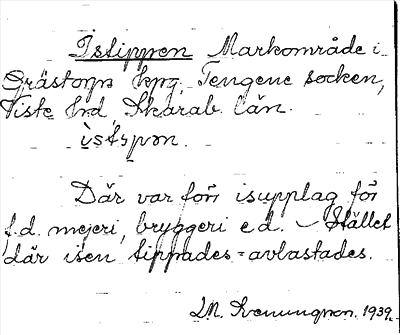 Istippen Markområde i
Grästorps kpg. Tengene socken,
Viste hrd Skarab. län.
Där var förr isupplag för
f.d. mejeri, bryggeri e d. – Stället
där isen tippades = avlastades.
1939.